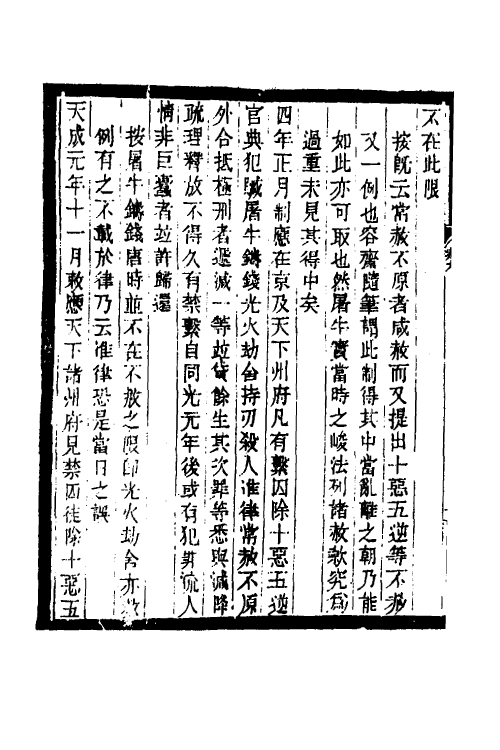 不在此限
按既云常赦不原者咸赦而又提出十惡五逆等不赦
又一例也容齋隨筆謂此制得其中當亂離之朝乃能
如此亦可取也然屠牛實當時之峻法列諸赦款究爲
過重未見其得中矣
四年正月制應在京及天下州府凡有繫囚除十惡五逆
官典犯贓屠牛鑄錢光火劫舍持刃殺人准律常赦不原
外合抵極刑者遞減一等並貸餘生其次罪等悉與減降
疏理釋放不得久有禁繫自同光元年後或有犯罪流人
情非巨蠹者並許歸還
按屠牛鑄錢唐時並不在不赦之限卽光火劫舍亦
例有之不載於律乃云准律恐是當日之誤
天成元年十一月敕應天下諸州府見禁囚徒除十惡五